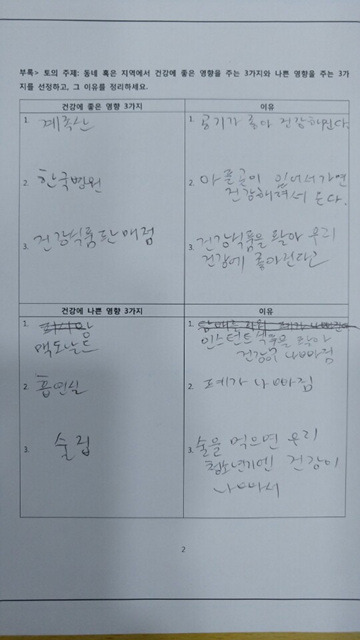 부록> 토의 주제: 동네 혹은 지역에서 건강에 좋은 영향을 주는 3가지와 나쁜 영향을 주는 3가
지를 선정하고, 그 이유를 정리하세요.
건강에 좋은 영향 3가지
이유
1. 계족산
1. 공기가 좋아 건강해진다.
2. 한국병원
2. 아픈곤이 있어서가면
건강해져서 온다.
3. 건강식품판매점
3. 건강식품을 팔아 우리
건강에 좋아진다
건강에 나쁜 영향 3가지
이유
1. 피시방
맥도날드
1. 인스턴트식품을 팔아
건강 나빠짐
2. 흡연실
2. 폐가 나빠짐
3. 술집
3. 술을 먹으면 우리
청소년기엔 건강이
나빠서
2